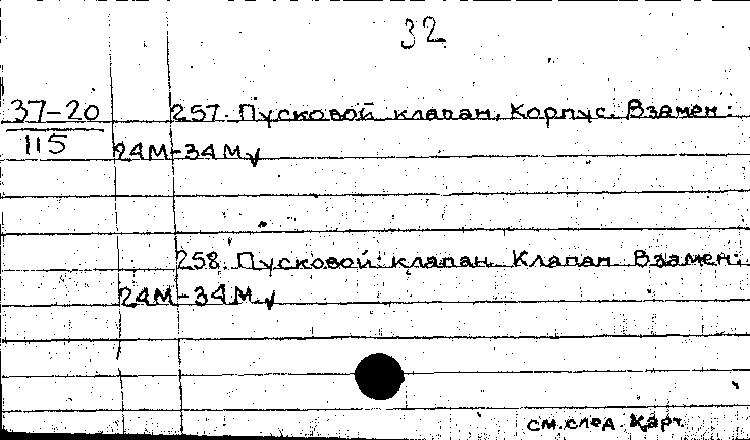 32
37-20 257. Пусковой клапан. Корпус. Взамен:
115 24М-34М √
258. Пусковой клапан Клапан Взамен:
24М-34М. √
см. след. карт.